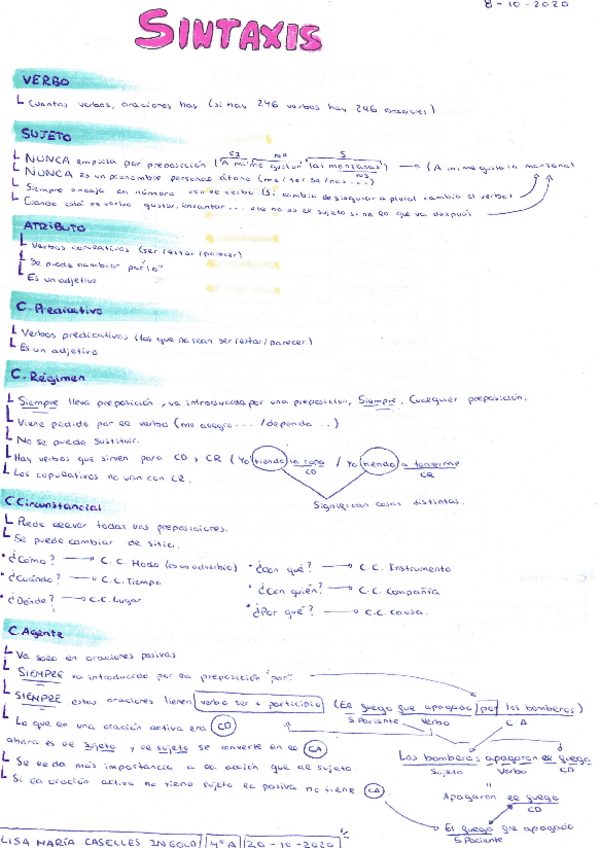 8-10-2020
SINTAXIS
VERBO
Cuantos verbos, oraciones hay (si hay 246 verbos hay 246 oraciones)
SUJETO
CI NV S
NUNCA empieza por preposición (A mi me gustan las manzanas) → (A mi me gusta la manzana)
NUNCA es un pronombre personal átono (me/ser se/nos...)
Siempre encaja en número con el verbo (Si cambio de singular a plural cambia el verbo)
Cuando está el verbo gustar, encantar... ese no va el sujeto si no lo que va después
ATRIBUTO
Verbos copulativos (ser/estar/parecer)
Se puede cambiar por "lo"
Es un adjetivo
C. Predicativo
Verbos predicativos (los que no sean ser/estar/parecer)
Es un adjetivo
C. Régimen
Siempre lleva preposición, va introducido por una preposición, Siempre. Cualquier preposición.
Viene pedido por el verbo (me alegro... /dependo...)
No se puede sustituir.
Hay verbos que sirven para CD y CR (Yo tiendo la ropa / Yo tiendo a torcerme
CD CR
Los copulativos no van con CR.
Significan cosas distintas.
C Circunstancial
Puede llevar todas las preposiciones.
Se puede cambiar de sitio.
• ¿Cómo? → C.C. Modo (es un adverbio) • ¿Con qué? → C.C. Instrumento
• ¿Cuándo? → C.C. Tiempo • ¿Con quién? → C.C. Compañía
• ¿Dónde? → C.C. Lugar • ¿Por qué? → C.C. Causa.
C. Agente
Va solo en oraciones pasivas
SIEMPRE va introducido por la preposición "por"
SIEMPRE estas oraciones tienen verbo ser + participio (El fuego fue apagado por los bomberos)
S Paciente Verbo C A
Lo que en una oración activa era CD
ahora es el sujeto y el sujeto se convierte en el CA
Los bomberos apagaron el fuego
Sujeto Verbo CD
Se le da más importancia a la acción que al sujeto.
Si la oración activa no tiene sujeto la pasiva no tiene CA
Apagaron el fuego
CD
El fuego fue apagado
S Paciente
LISA MARÍA CASELLES INGOLD // 4º A // 20-10-2020